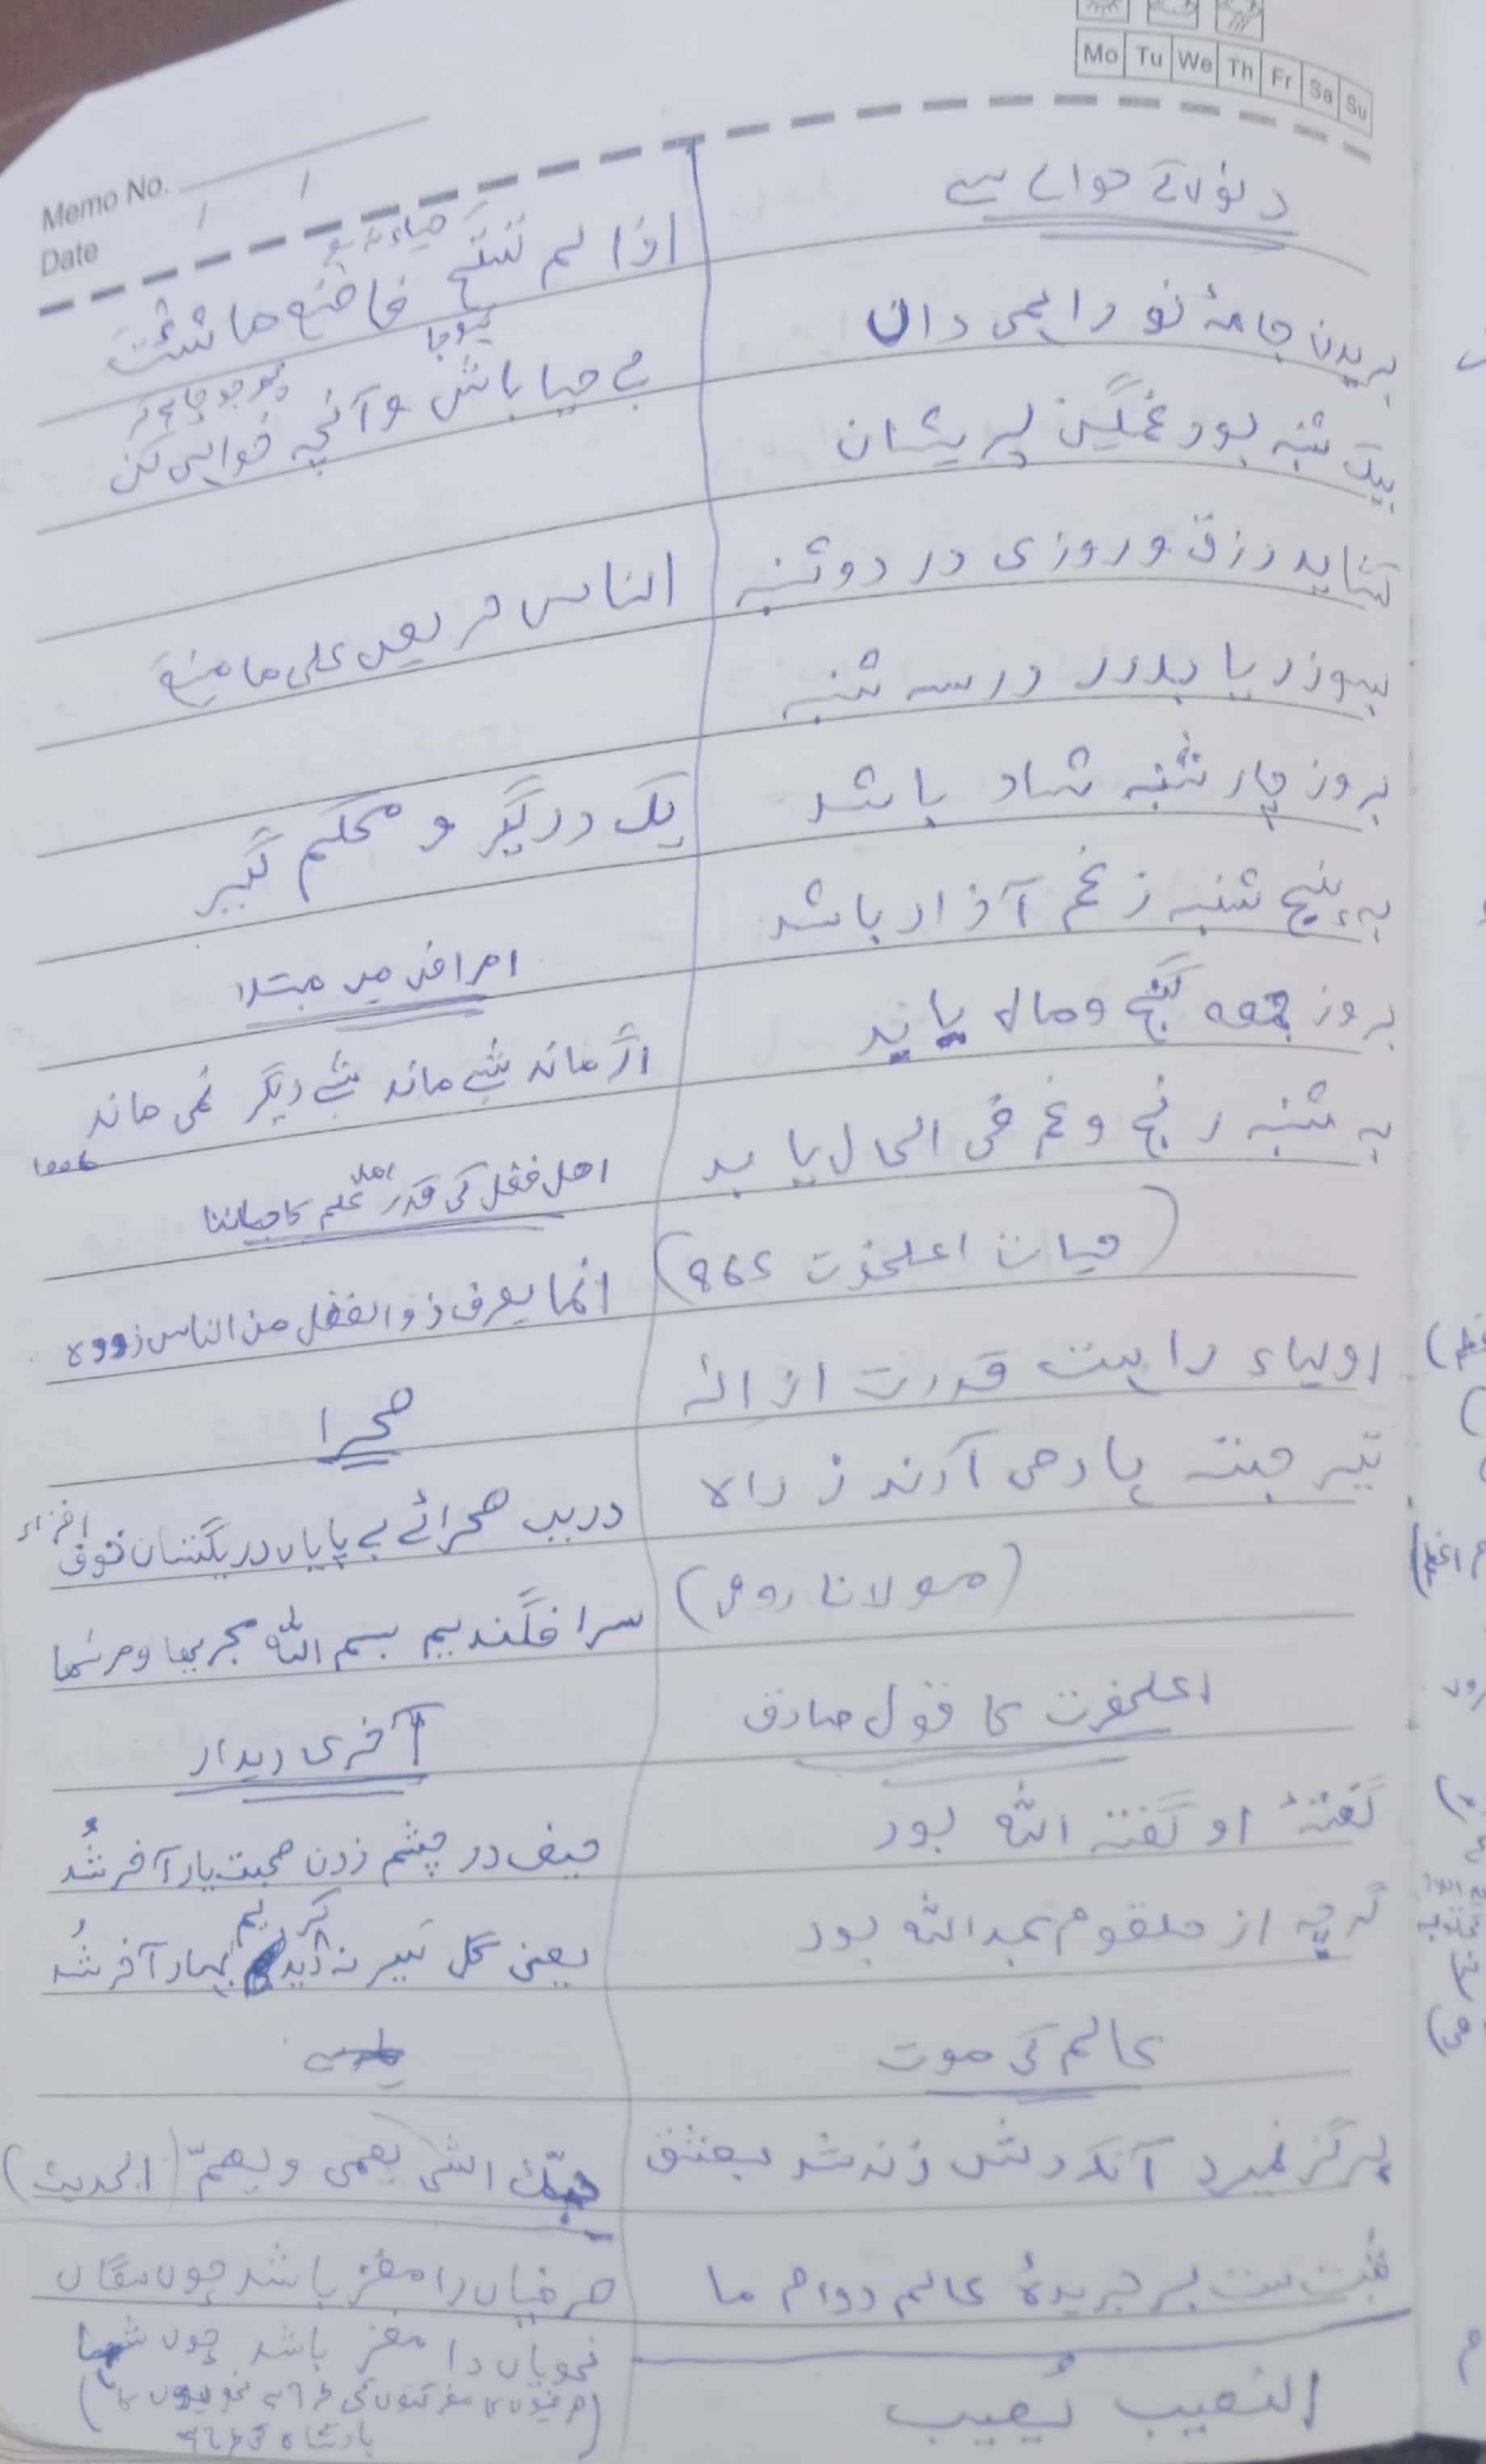 Mo Tu We Th Fr Sa Su
Memo No.
Date / /
دنوں کے حوالے سے
بریدن جامۂ نو را ہمی دان
یک شنبہ بود غمگین پریشان
کشاید رزق و روزی در دوشنبہ
بسوزد یا بدرد در سہ شنبہ
بروز چار شنبہ شاد باشد
بہ پنج شنبہ ز غم آزاد باشد
بروز جمعہ گنج ومال یابد
بہ شنبہ رنج و غم فی الحال یابد
(حیات اعلحضرت 965)
اولیاء را ہست قدرت از الہ
تیر جستہ باز می آرند ز راہ
(مولانا رومی)
اعلحضرت کا قول صادق
گفتۂ او گفتہ اللہ بود
گرچہ از حلقوم عبداللہ بود
عالم کی موت
ہرگز نمیرد آنکہ دلش زندہ شد بعشق
ثبت ست بر جریدۂ عالم دوام ما
النصیب یُصیب
اذا لم تستح فاصنع ما شئت
حیاء نہ ہو
بے حیا باش و آنچہ خواہی کن
ہوجا
پھر جو چاہے کر
الناس حریص علی ما منع
یک در گیر و محکم گیر
امراض میں مبتلا
اگر ماند شبے ماند شبے دیگر نمی ماند
اھل فضل کی قدر اھل علم کا جاننا
انما یعرف ذو الفضل من الناس ذووہ
صحرا
دریں صحرائے بے پایاں در ریگستان خوف افزاء
سر افگندیم بسم اللہ مجریھا ومرسٰھا
آخری دیدار
حیف در چشم زدن صحبت یار آخر شُد
یعنی گل سیر نہ دیدیم بہار آخر شُد
حبّک الشی یعمی ویصمّ (الحدیث)
صرفیاں را مغز باشد چوں سگاں
نحویاں را مغز باشد چوں شہا
(صرفیوں کا مغز کتوں کی طرح نحویوں کا
بادشاہ کی طرح